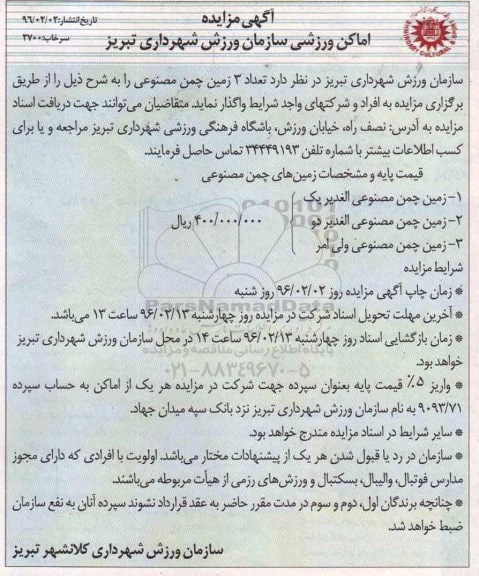 آگهی مزایده
تاریخ انتشار: ۹۶/۰۲/۰۲
اماکن ورزشی سازمان ورزش شهرداری تبریز
سرخاب: ۲۷۰۰
سازمان ورزش شهرداری تبریز در نظر دارد تعداد ۳ زمین چمن مصنوعی را به شرح ذیل را از طریق
برگزاری مزایده به افراد و شرکتهای واجد شرایط واگذار نماید. متقاضیان می‌توانند جهت دریافت اسناد
مزایده به آدرس: نصف راه، خیابان ورزش، باشگاه فرهنگی ورزشی شهرداری تبریز مراجعه و یا برای
کسب اطلاعات بیشتر با شماره تلفن ۳۴۴۴۹۱۹۳ تماس حاصل فرمایند.
قیمت پایه و مشخصات زمین‌های چمن مصنوعی
۱- زمین چمن مصنوعی الغدیر یک
۲- زمین چمن مصنوعی الغدیر دو ۴۰۰/۰۰۰/۰۰۰ ریال
۳- زمین چمن مصنوعی ولی امر
شرایط مزایده
* زمان چاپ آگهی مزایده روز ۹۶/۰۲/۰۲ روز شنبه
ParsNamadData
* آخرین مهلت تحویل اسناد شرکت در مزایده روز چهارشنبه ۹۶/۰۲/۱۳ ساعت ۱۳ می‌باشد.
* زمان بازگشایی اسناد روز چهارشنبه ۹۶/۰۲/۱۳ ساعت ۱۴ در محل سازمان ورزش شهرداری تبریز
پایگاه اطلاع رسانی مناقصه و مزایده
خواهد بود.
۰۲۱-۸۸۳۴۹۶۷۰-۵
* واریز ۵٪ قیمت پایه بعنوان سپرده جهت شرکت در مزایده هر یک از اماکن به حساب سپرده
۹۰۹۳/۷۱ به نام سازمان ورزش شهرداری تبریز نزد بانک سپه میدان جهاد.
* سایر شرایط در اسناد مزایده مندرج خواهد بود.
* سازمان در رد یا قبول شدن هر یک از پیشنهادات مختار می‌باشد. اولویت با افرادی که دارای مجوز
مدارس فوتبال، والیبال، بسکتبال و ورزش‌های رزمی از هیأت مربوطه می‌باشند.
* چنانچه برندگان اول، دوم و سوم در مدت مقرر حاضر به عقد قرارداد نشوند سپرده آنان به نفع سازمان
ضبط خواهد شد.
سازمان ورزش شهرداری کلانشهر تبریز